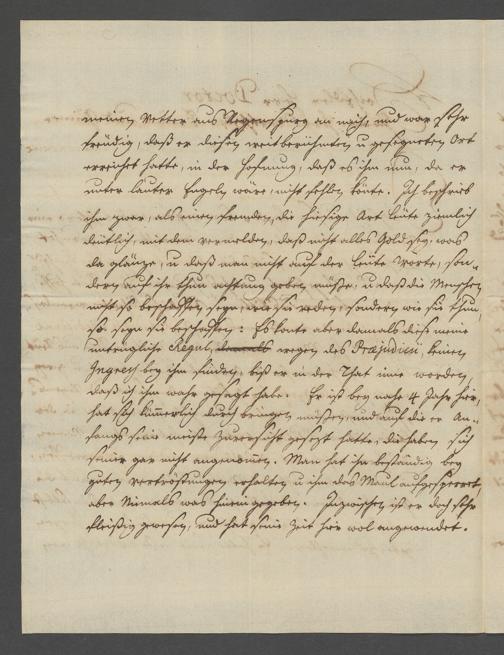 meinen Vetter aus Regenspurg an mich, und war sehr
freudig, daß er diesen weitberühmten u gesegneten Ort
erreichet hatte, in der Hofnung, daß es ihm nun, da er
unter lauter Engeln wäre, nicht fehlen könte. Ich beschrieb
ihm zwar, als einen fremden, die hiesige Art Leute ziemlich
deutlich, mit dem vermelden, daß nicht alles Gold sey, was
da glänze, u daß man nicht auf der Leute Worte, son-
dern auf ihr thun achtung geben müsse, u daß die Menschen
nicht so beschaffen seyn, wie sie reden, sondern wie sie thun,
so seyn sie beschaffen: Es konte aber damals diese meine
untrügliche Regul, damals wegen des Præjudicii keinen
Ingress bey ihm finden, biß er in der That inne worden,
daß ich ihm wahr gesagt habe. Er ist bey nahe 4 Jahr hier,
hat sich kümmerlich durch bringen müssen, und auf die er An-
fangs seine meiste Zuversicht gesezt hatte, die haben sich
seiner gar nicht angenommen. Man hat ihn beständig bey
guten vertröstungen erhalten u ihm das Maul aufgesperret,
aber Niemals was hinein gegeben. Inzwischen ist er doch sehr
fleißig gewesen, und hat seine Zeit hier wol angewendet.